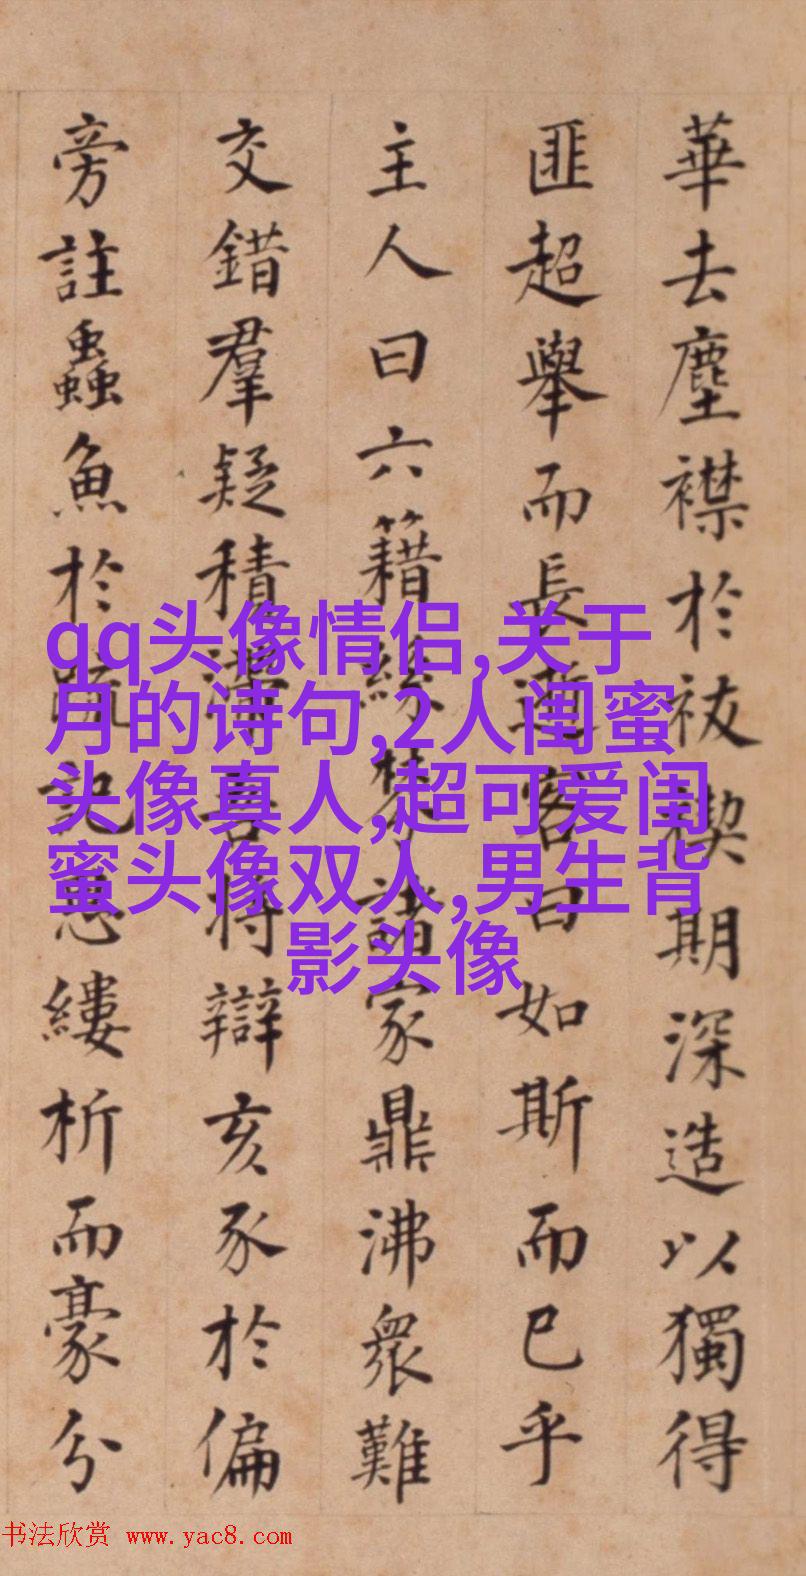 華去塵襟於祓禊期深造以獨得
匪超舉而長客曰如斯而已乎
主人曰六籍諸家鼎沸眾難
交錯羣疑積滿吾將辯亥豕於偏
旁註蟲魚於疏記悉縷析而豪分
qq头像情侣,关于
月的诗句,2人闺蜜
头像真人,超可爱闺
蜜头像双人,男生背
影头像
书法欣赏 www.yac8.com